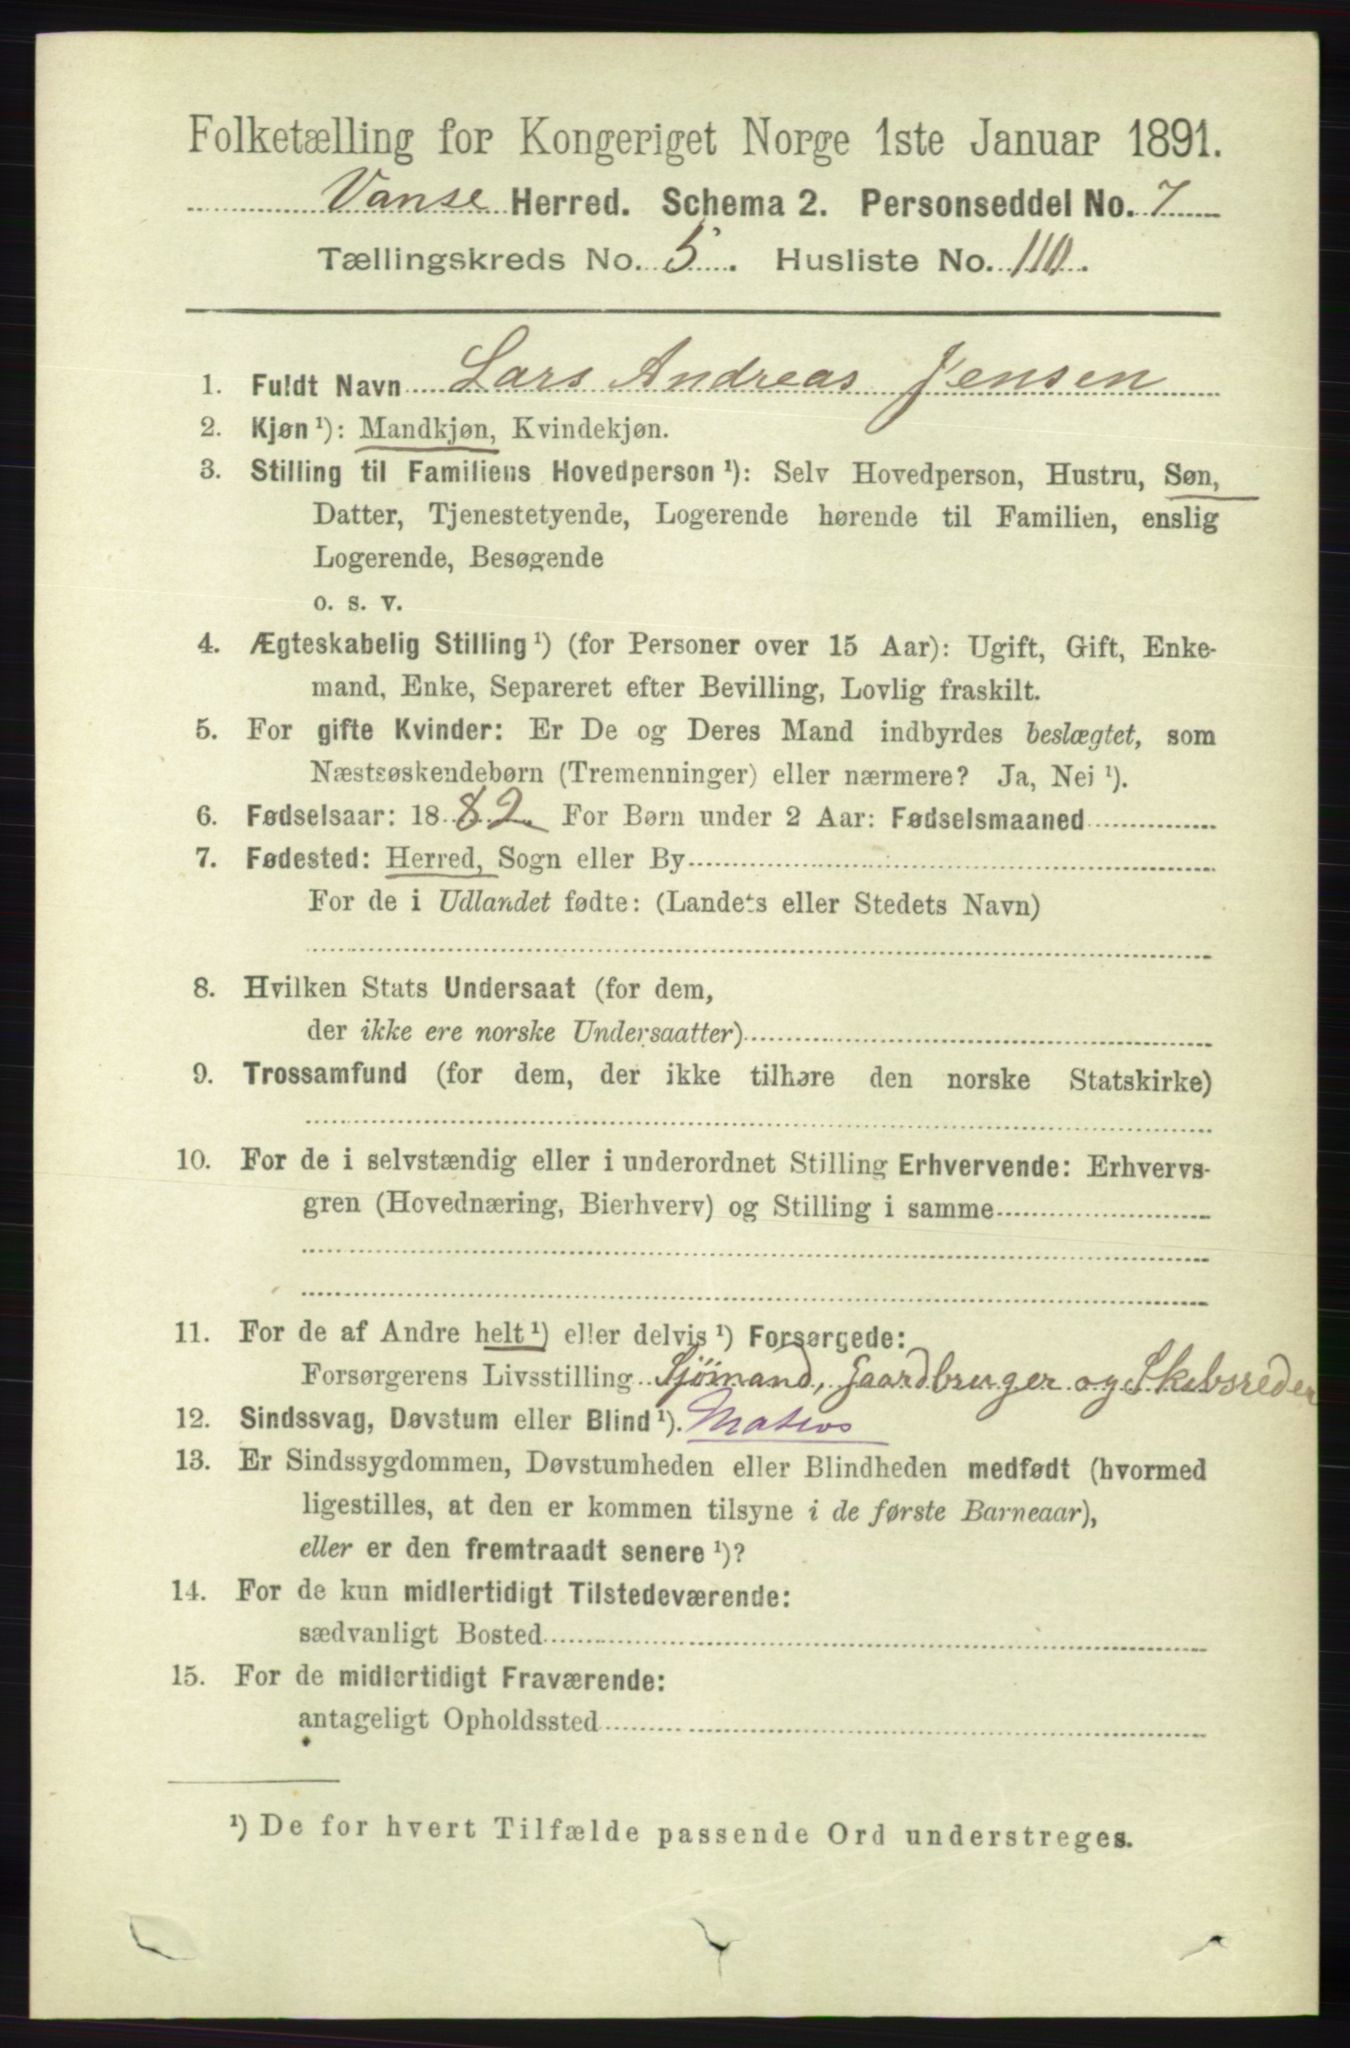 Folketælling for Kongeriget Norge 1ste Januar 1891.
Vanse Herred. Schema 2. Personseddel No. 7
Tællingskreds No. 5. Husliste No. 110.
1. Fuldt Navn Lars Andreas Jensen
2. Kjøn ¹): Mandkjøn, Kvindekjøn.
3. Stilling til Familiens Hovedperson ¹): Selv Hovedperson, Hustru, Søn,
Datter, Tjenestetyende, Logerende hørende til Familien, enslig
Logerende, Besøgende
o. s. v.
4. Ægteskabelig Stilling ¹) (for Personer over 15 Aar): Ugift, Gift, Enke-
mand, Enke, Separeret efter Bevilling, Lovlig fraskilt.
5. For gifte Kvinder: Er De og Deres Mand indbyrdes beslægtet, som
Næstsøskendebørn (Tremenninger) eller nærmere? Ja, Nei ¹).
6. Fødselsaar: 1882. For Børn under 2 Aar: Fødselsmaaned
7. Fødested: Herred, Sogn eller By
For de i Udlandet fødte: (Landets eller Stedets Navn)
8. Hvilken Stats Undersaat (for dem,
der ikke ere norske Undersaatter)
9. Trossamfund (for dem, der ikke tilhøre den norske Statskirke)
10. For de i selvstændig eller i underordnet Stilling Erhvervende: Erhvervs-
gren (Hovednæring, Bierhverv) og Stilling i samme
11. For de af Andre helt ¹) eller delvis ¹) Forsørgede:
Forsørgerens Livsstilling Sjömand, Gaardbruger og Skibsreder
12. Sindssvag, Døvstum eller Blind ¹).
13. Er Sindssygdommen, Døvstumheden eller Blindheden medfødt (hvormed
ligestilles, at den er kommen tilsyne i de første Barneaar),
eller er den fremtraadt senere ¹)?
14. For de kun midlertidigt Tilstedeværende:
sædvanligt Bosted
15. For de midlertidigt Fraværende:
antageligt Opholdssted
¹) De for hvert Tilfælde passende Ord understreges.